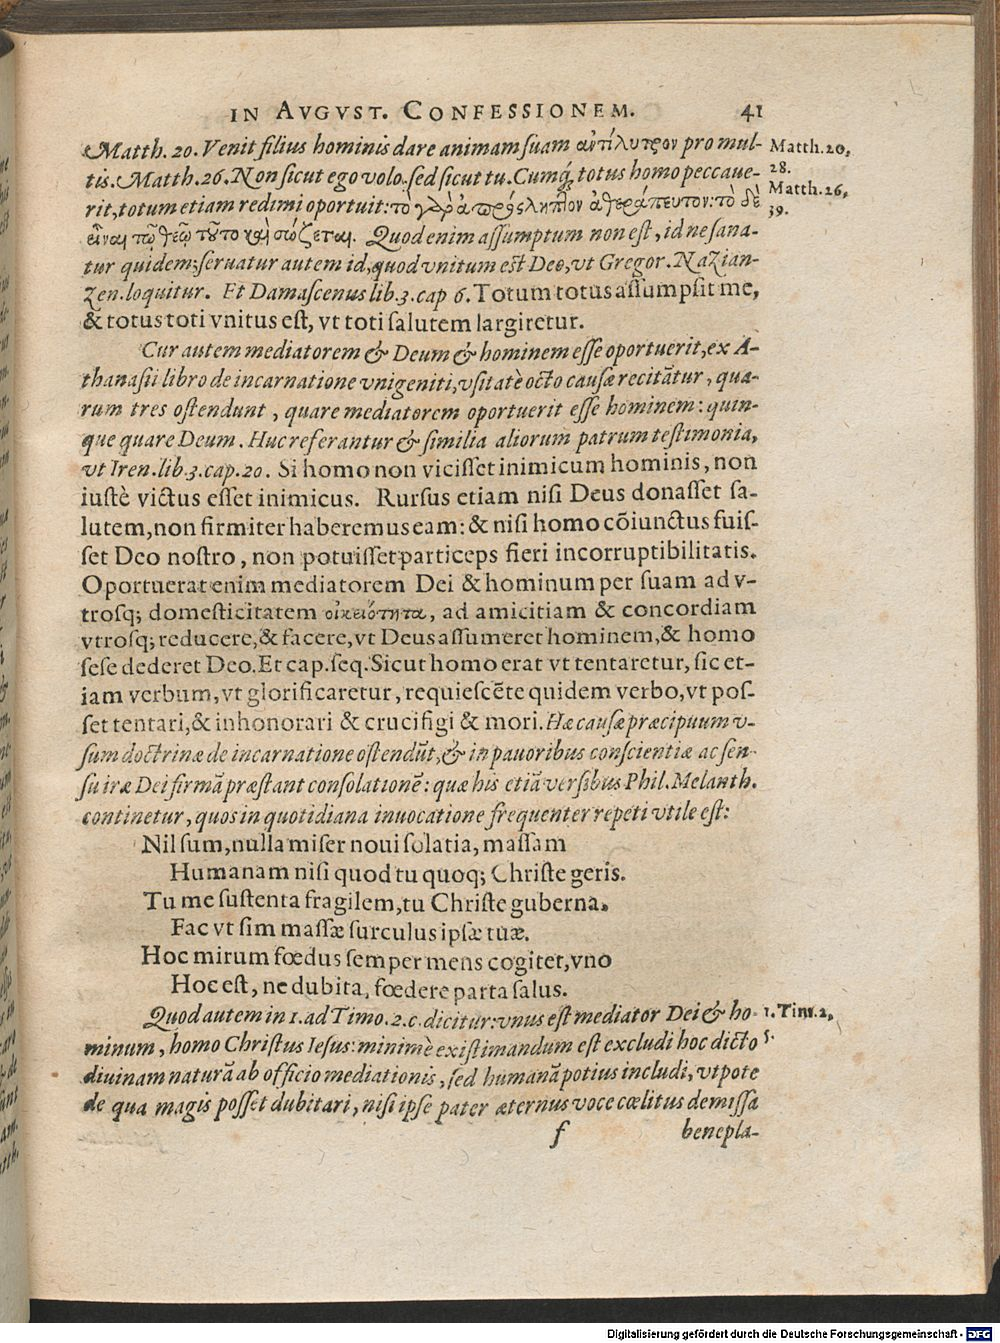 IN AVGVST. CONFESSIONEM. 41
Matth. 20. Venit filius hominis dare animam suam ἀντίλυτρον pro mul-
Matth. 20,
28.
tis. Matth. 26. Non sicut ego volo, sed sicut tu. Cumq́; totus homo peccaue-
Matth. 26,
39.
rit, totum etiam redimi oportuit: τὸ γὰρ ἀπρόσληπτον ἀθεράπευτον: τὸ δὲ
τῷ θεῷ τοῦτο καὶ σώζεται. Quod enim assumptum non est, id ne sana-
tur quidem; seruatur autem id, quod vnitum est Deo, vt Gregor. Nazian-
zen. loquitur. Et Damascenus lib. 3. cap 6. Totum totus assumpsit me,
& totus toti vnitus est, vt toti salutem largiretur.
Cur autem mediatorem & Deum & hominem esse oportuerit, ex A-
thanasii libro de incarnatione vnigeniti, vsitatè octo causæ recitātur, qua-
rum tres ostendunt, quare mediatorem oportuerit esse hominem: quin-
que quare Deum. Huc referantur & similia aliorum patrum testimonia,
vt Iren. lib. 3. cap. 20. Si homo non vicisset inimicum hominis, non
iustè victus esset inimicus. Rursus etiam nisi Deus donasset sa-
lutem, non firmiter haberemus eam: & nisi homo cōiunctus fuis-
set Deo nostro, non potuisset particeps fieri incorruptibilitatis.
Oportuerat enim mediatorem Dei & hominum per suam ad v-
trosq; domesticitatem οἰκειότητα, ad amicitiam & concordiam
vtrosq; reducere, & facere, vt Deus assumeret hominem, & homo
sese dederet Deo. Et cap. seq. Sicut homo erat vt tentaretur, sic et-
iam verbum, vt glorificaretur, requiescēte quidem verbo, vt pos-
set tentari, & inhonorari & crucifigi & mori. Hæ causæ præcipuum v-
sum doctrinæ de incarnatione ostendūt, & in pauoribus conscientiæ ac sen-
su iræ Dei firmā præstant consolationē: quæ his etiā versibus Phil. Melanth.
continetur, quos in quotidiana inuocatione frequenter repeti vtile est:
Nil sum, nulla miser noui solatia, massam
Humanam nisi quod tu quoq; Christe geris.
Tu me sustenta fragilem, tu Christe guberna,
Fac vt sim massæ surculus ipsæ tuæ.
Hoc mirum fœdus semper mens cogitet, vno
Hoc est, ne dubita, fœdere parta salus.
Quod autem in 1. ad Timo. 2. c. dicitur: vnus est mediator Dei & ho-
1. Tim. 2,
5.
minum, homo Christus Iesus: minimè existimandum est excludi hoc dicto
diuinam naturā ab officio mediationis, sed humanā potius includi, vtpote
de qua magis posset dubitari, nisi ipse pater æternus voce cœlitus demissa
f benepla-
Digitalisierung gefördert durch die Deutsche Forschungsgemeinschaft - DFG